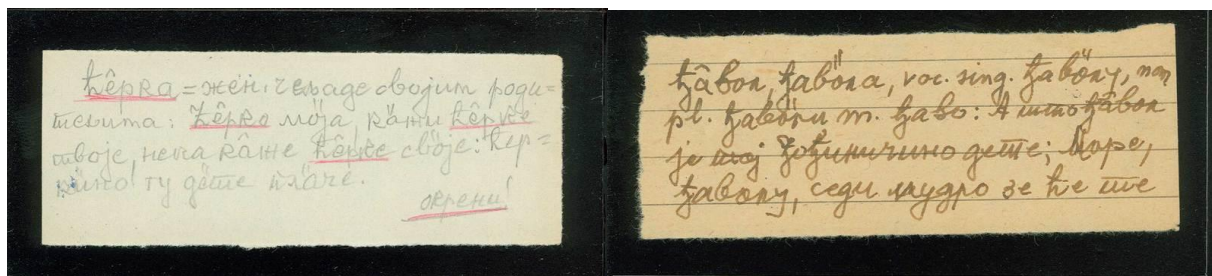 ћêрка = жен. чељаде својим роди=
тељима: ћêрко мöја, кâжи ћêрке
твоје, нека кâже ћêрке свöје: ћер=
кино ту дêте плаче.
окрени!
ђâвол, ђавöла, voc. sing. ђавöлу, nom
pl. ђавöли m. ђаво: А што ђâвол
је дете; Море,
ђаволу, седи мудро зе ће те